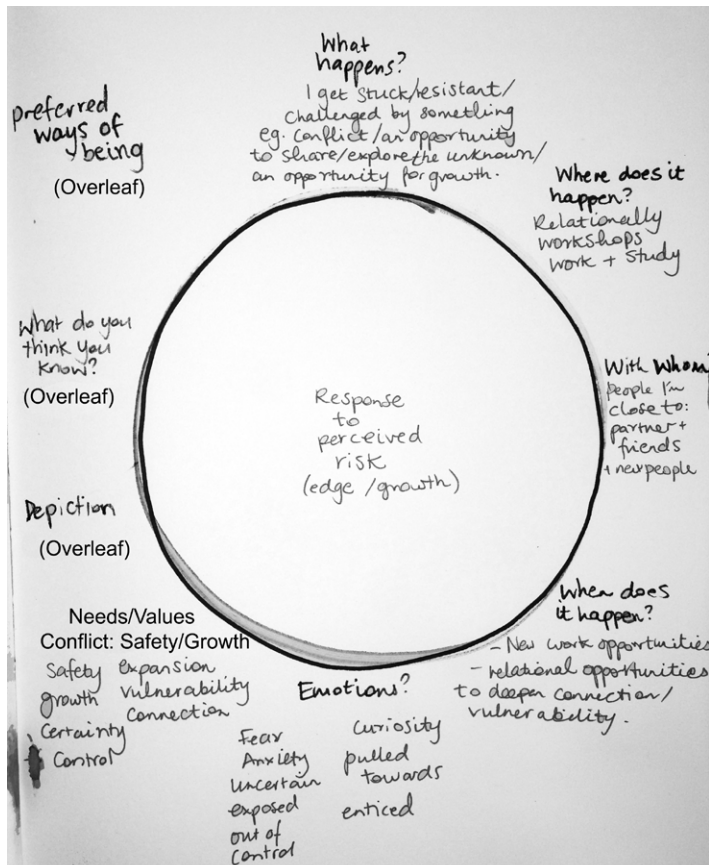 What
happens?
I get stuck/resistant/
challenged by something
eg. conflict/an opportunity
to share/explore the unknown/
an opportunity for growth.
Where does it
happen?
Relationally
workshops
work + study
With Whom?
people I'm
close to:
partner +
friends
+ new people
When does
it happen?
- New work opportunities
- relational opportunities
to deeper connection/
vulnerability.
Emotions?
Fear
Anxiety
uncertain
exposed
out of
control
curiosity
pulled
towards
enticed
Needs/Values
Conflict: Safety/Growth
Safety
growth
Certainty
Control
expansion
vulnerability
connection
Depiction
(Overleaf)
What do you
think you
know?
(Overleaf)
preferred
ways of
being
(Overleaf)
Response
to
perceived
risk
(edge/growth)